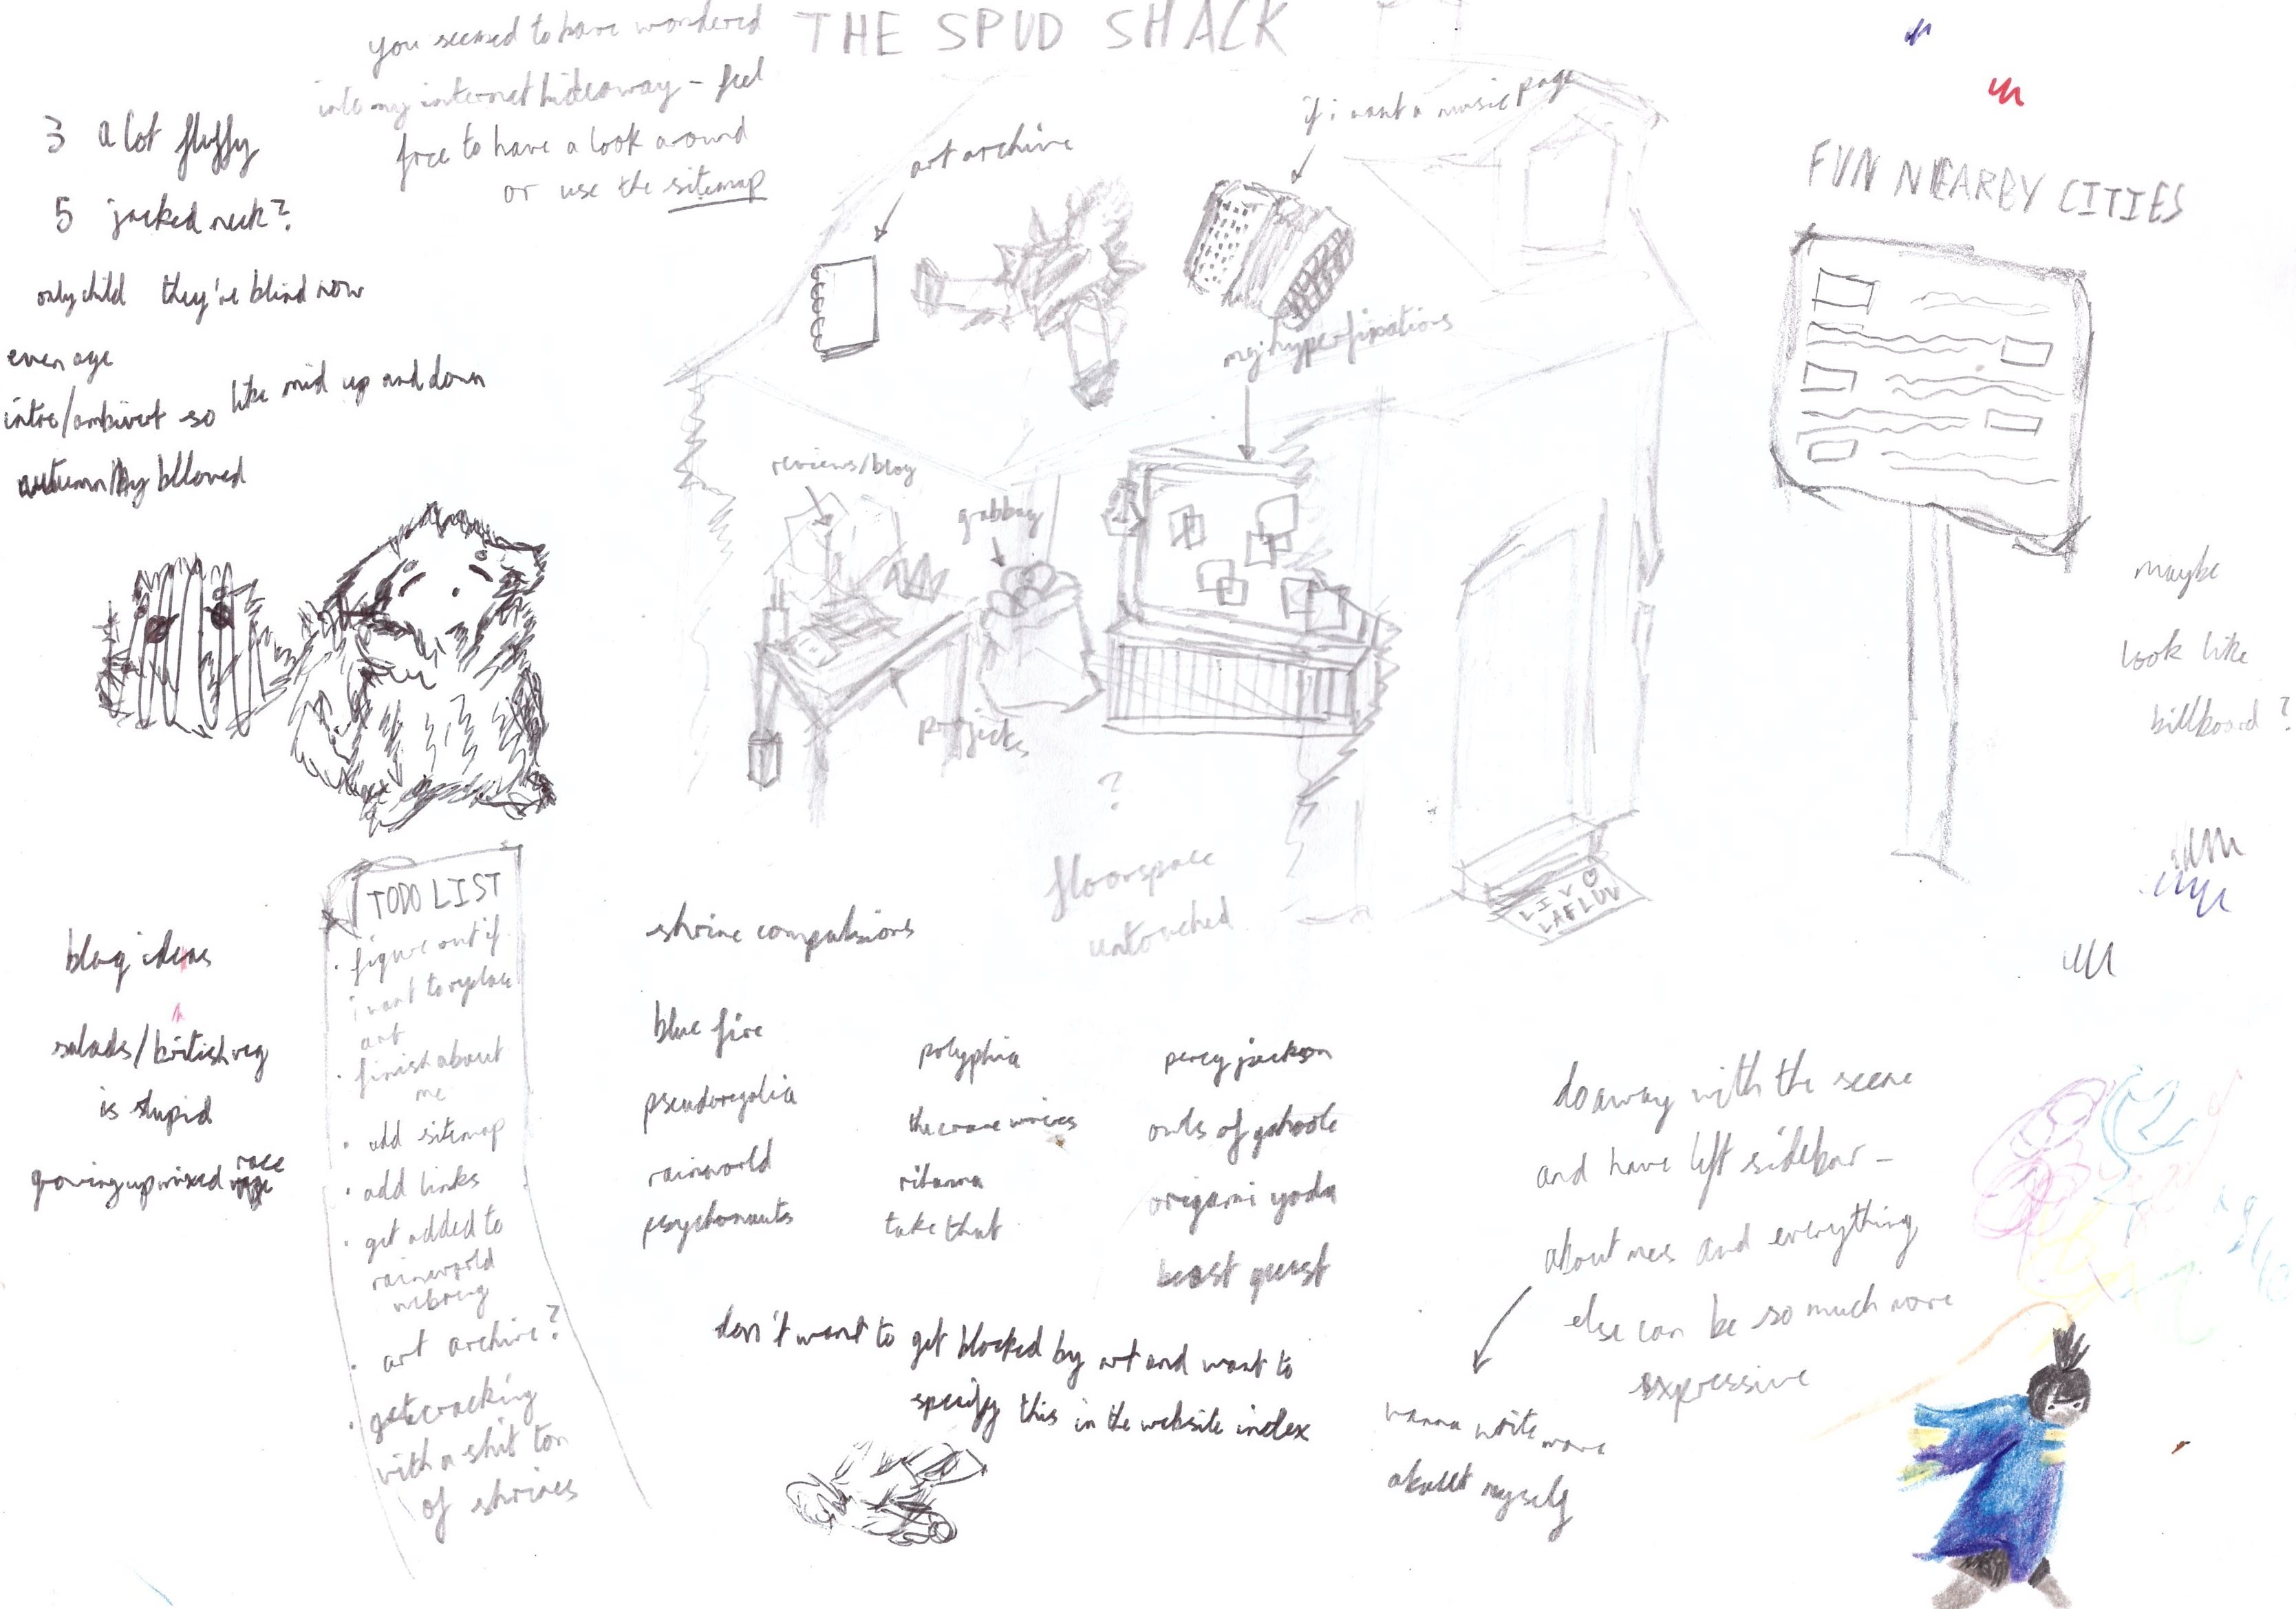 THE SPUD SHACK
you seemed to have wondered
into my internet hideaway - feel
free to have a look around
or use the sitemap
3 a lot fluffy
5 jacked neck?
only child they're blind now
even age
intro/ambivert so like mid up and down
art archive
if i want a music page
my hyperfixations
reviews/blog
grabbag
projects
?
floorspace
untouched
LIV
LAF LUV
FUN NEARBY CITIES
maybe
look like
billboard?
TODO LIST
· figure out if
i want to replace
art
· finish about
me
· add sitemap
· add links
· get added to
rainworld
webring
· art archive?
· get cracking
with a shit ton
of shrines
blog ideas
salads/british veg
is stupid
growing up mixed race
shrine compulsions
blue fire
pseudoregalia
rainworld
psychonauts
polyphia
the crane wives
rihanna
take that
percy jackson
owls of gahoole
origami yoda
beast quest
don't want to get blocked by art and want to
specify this in the website index
do away with the scene
and have left sidebar -
about mes and everything
else can be so much more
expressive
wanna write more
about myself